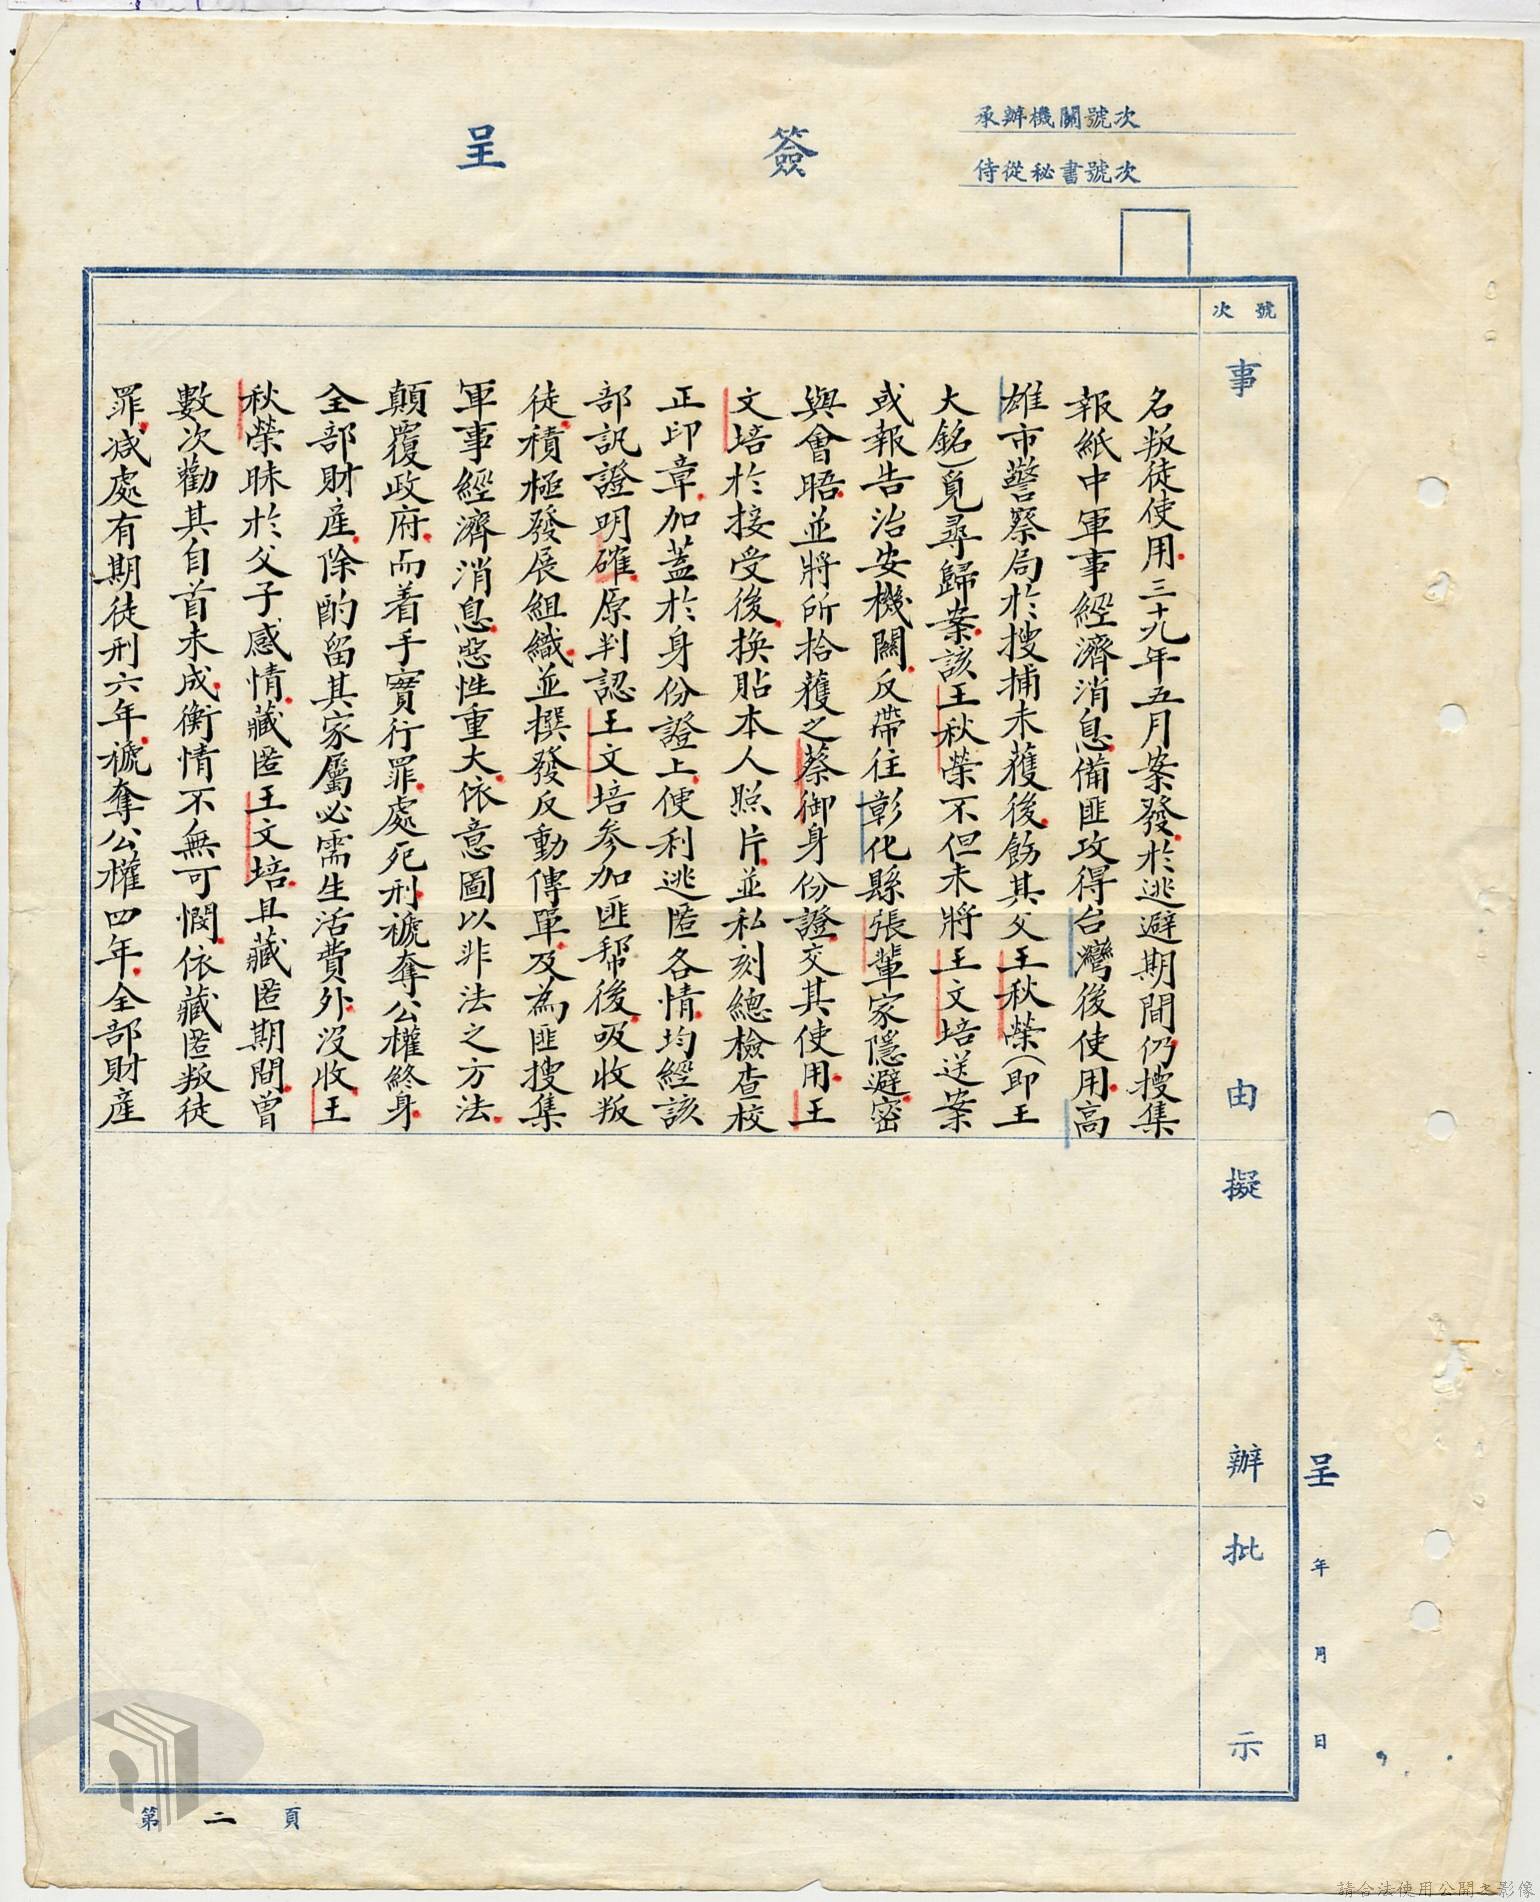 承辦機關號次
侍從秘書號次
簽呈
號次
事由
擬辦
批示
名叛徒使用三十九年五月案發於逃避期間仍搜集
報紙中軍事經濟消息備匪攻得台灣後使用高
雄市警察局於搜捕未獲後飭其父王秋榮(即王
大銘)覓尋歸案該王秋榮不但未將王文培送案
或報告治安機關反帶往彰化縣張輩家隱避密
與會晤並將所拾獲之蔡御身份證交其使用王
文培於接受後換貼本人照片並私刻總檢查校
正印章加蓋於身份證上便利逃匿各情均經該
部訊證明確原判認王文培參加匪幫後吸收叛
徒積極發展組織並撰發反動傳單及為匪搜集
軍事經濟消息惡性重大依意圖以非法之方法
顛覆政府而着手實行罪處死刑褫奪公權終身
全部財產除酌留其家屬必需生活費外沒收王
秋榮昧於父子感情藏匿王文培且藏匿期間曾
數次勸其自首未成衡情不無可憫依藏匿叛徒
罪減處有期徒刑六年褫奪公權四年全部財產
呈 年 月 日
第二頁
請合法使用公開之影像